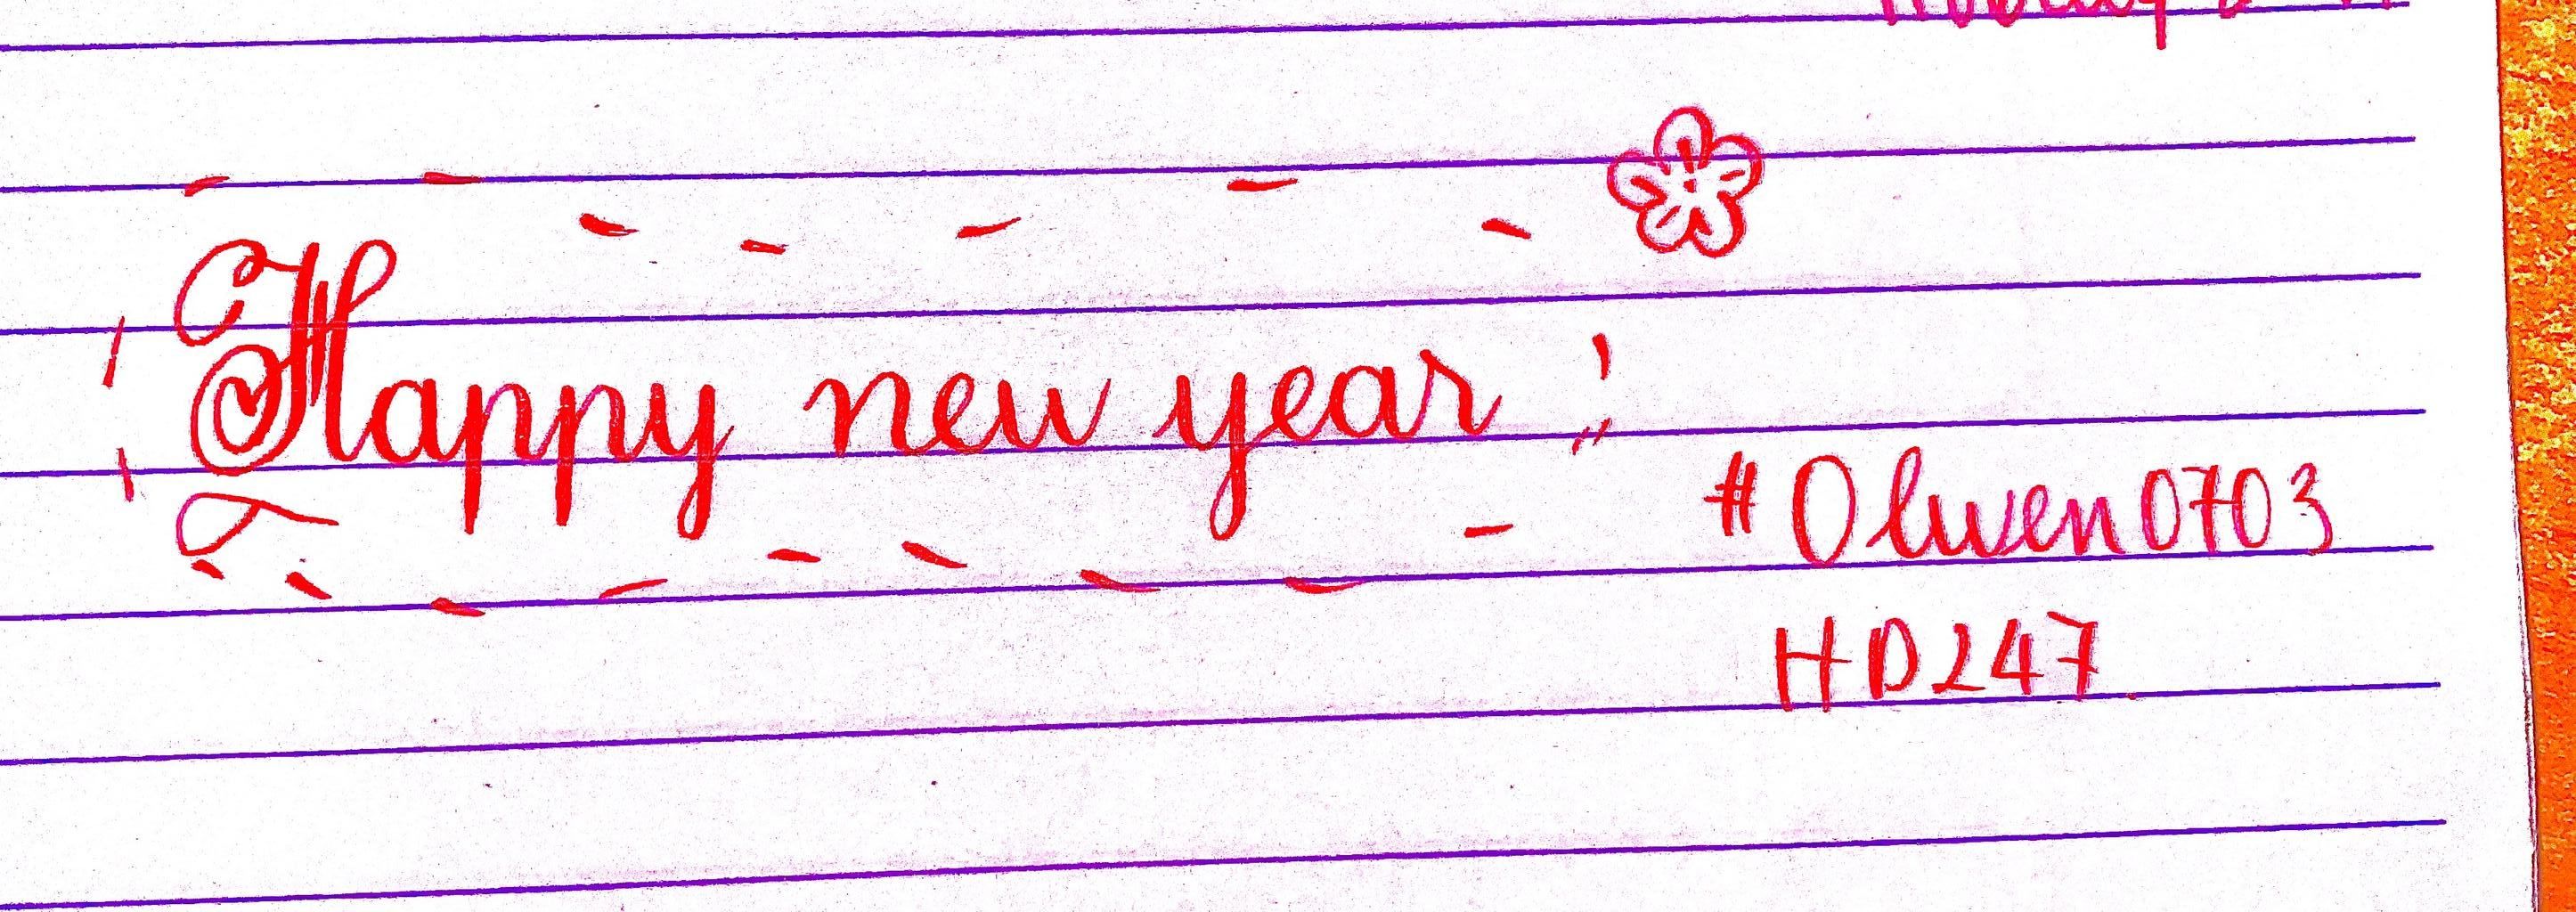 Happy new year
#Olwen0703
HD247